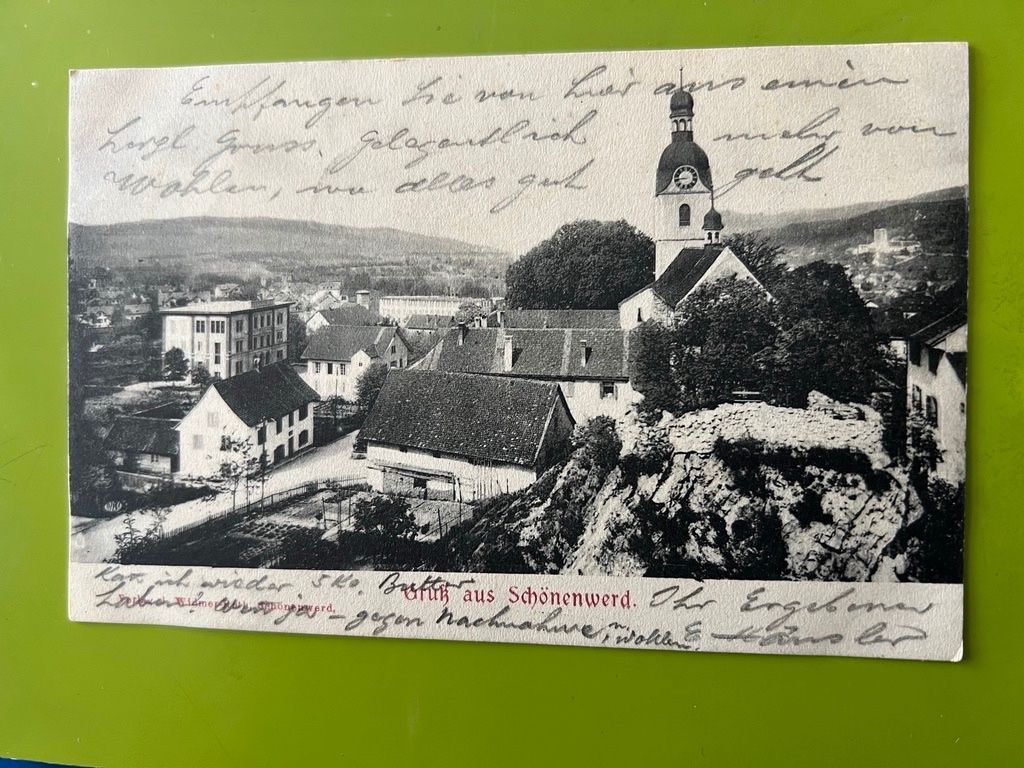 Empfangen Sie von hier aus einen
hrzgl Gruss, gelegentlich mehr von
Wohlen, wo alles gut geht
Kan ich wieder 5 Ko. Butter
Gruß aus Schönenwerd.
Schönenwerd.
haben – gegen Nachnahme n. Wohlen.
Ihr Ergebener
E Häusler